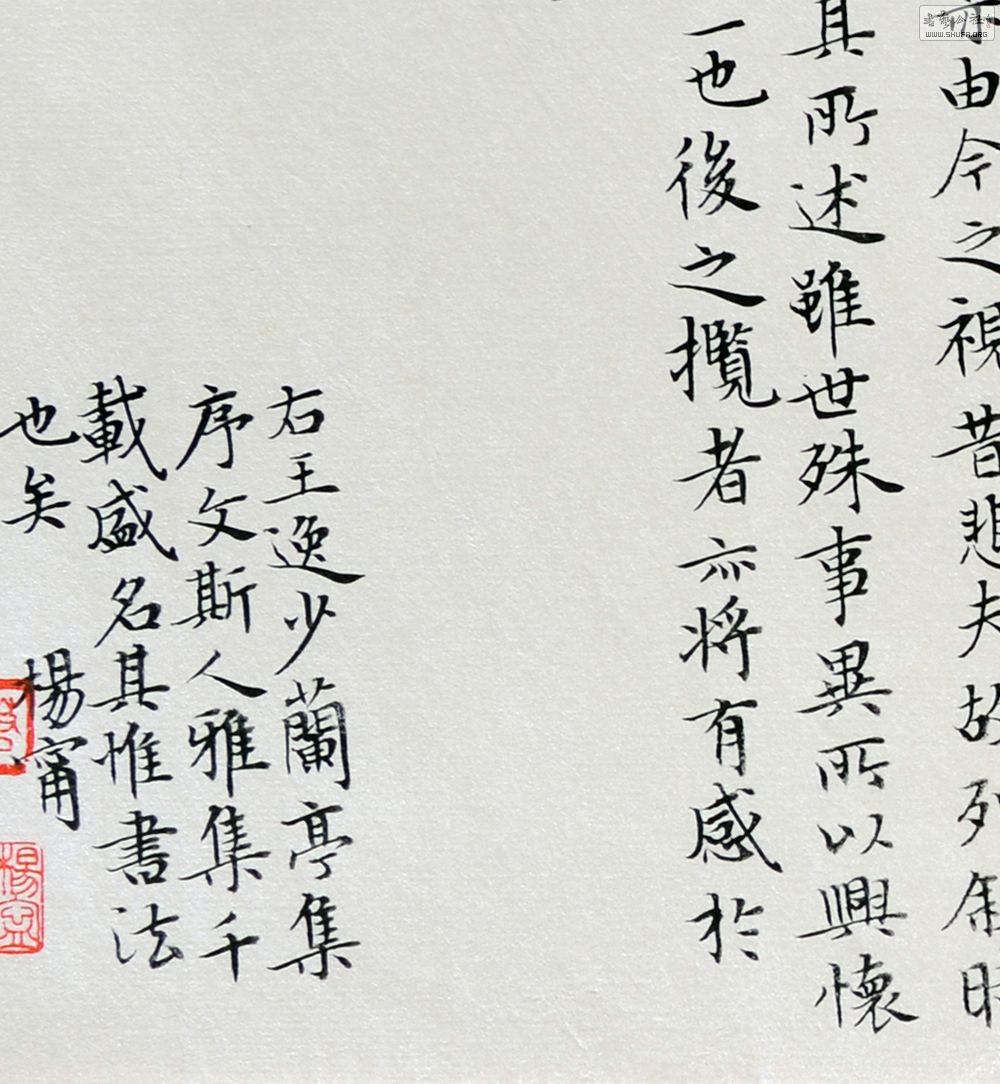 由今之視昔悲夫故列叙時
其所述雖世殊事異所以興懷
一也後之攬者亦將有感於
右王逸少蘭亭集
序文斯人雅集千
載盛名其惟書法
也矣
楊甯
書藝公社
WWW.SHUFA.ORG